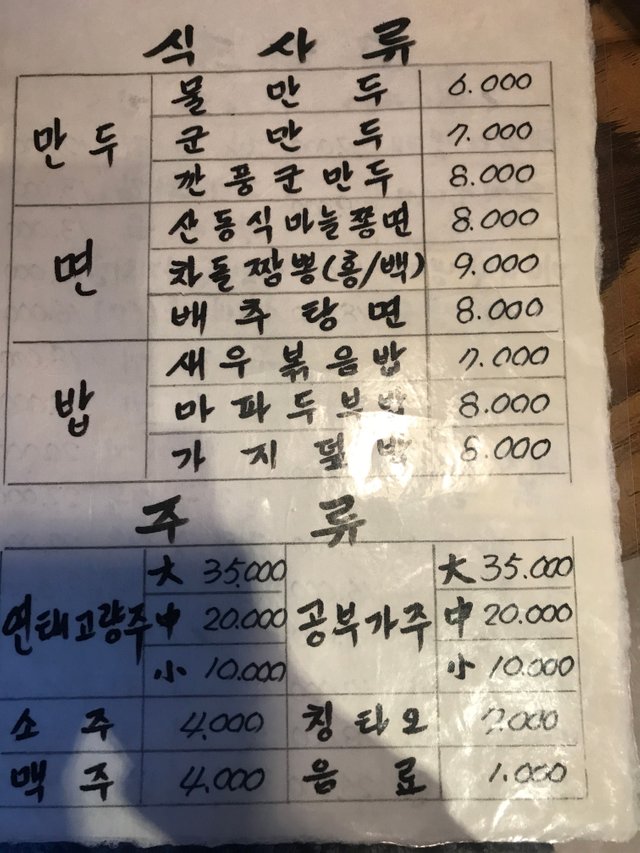 식 사 류
만 두
물 만 두 6.000
군 만 두 7.000
깐 풍 군 만 두 8.000
면
산 동 식 마늘 쫑 면 8.000
차돌 짬 뽕 (홍/백) 9.000
배 추 탕 면 8.000
밥
새 우 볶 음 밥 7.000
마 파 두 부 밥 8.000
가 지 덮 밥 8.000
주 류
연태고량주
大 35.000
中 20.000
小 10.000
공부가주
大 35.000
中 20.000
小 10.000
소 주 4.000
칭 타 오 7.000
맥 주 4.000
음 료 1.000